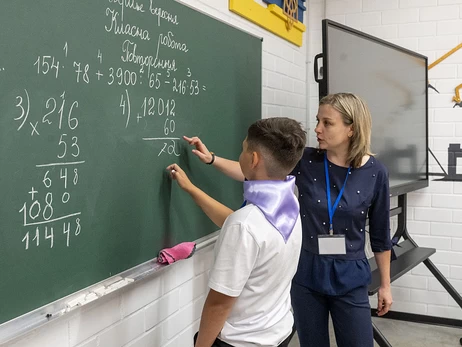 вересня
Класна робота
Повторення
154·78+3900:65-216·53=
3) 216
x 53
648
+ 1080
11448
4) 12012
+ 60
72